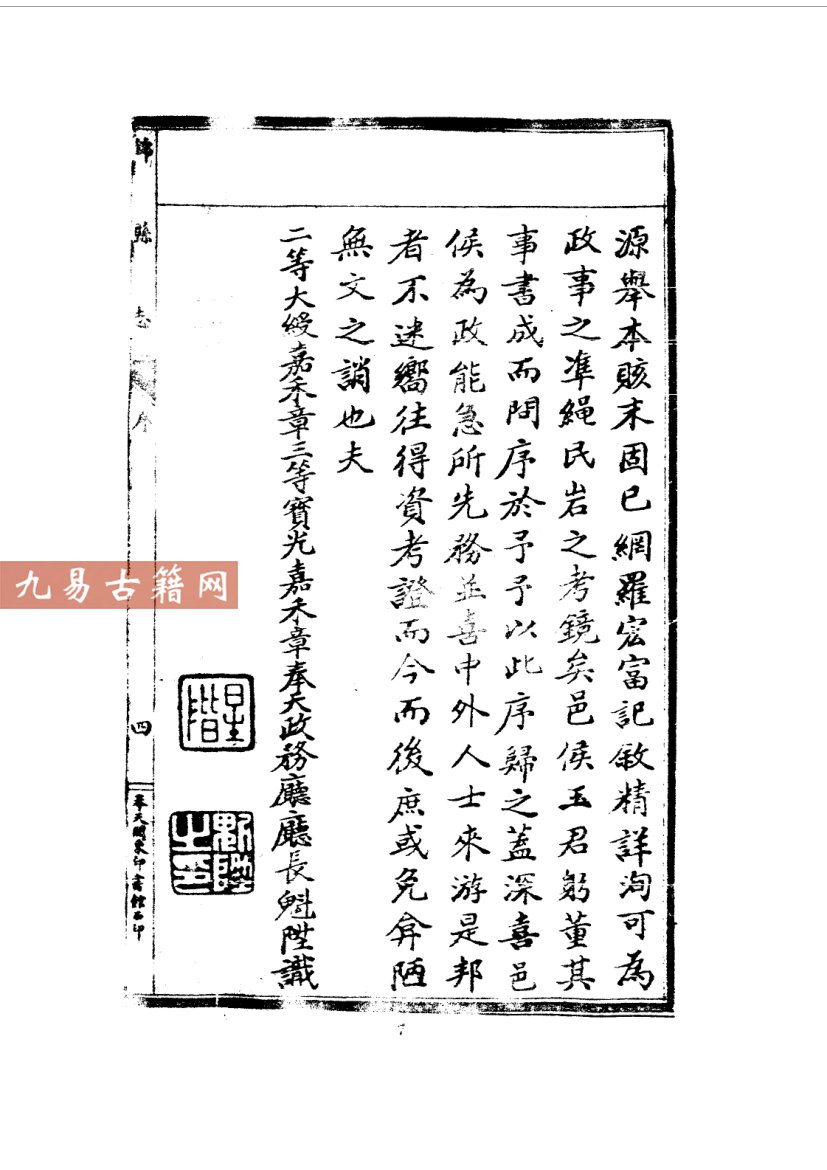 源舉本賅末固已網羅宏富記敘精詳洵可為
政事之準繩民岩之考鏡矣邑侯玉君躬董其
事書成而問序於予予以此序歸之蓋深喜邑
侯為政能急所先務並喜中外人士來游是邦
者不迷嚮往得資考證而今而後庶或免弇陋
無文之誚也夫
二等大綬嘉禾章三等寶光嘉禾章奉天政務廳廳長魁陞識
星階
魁陞之印
縣志
序
四
奉天關東印書館石印
九易古籍网